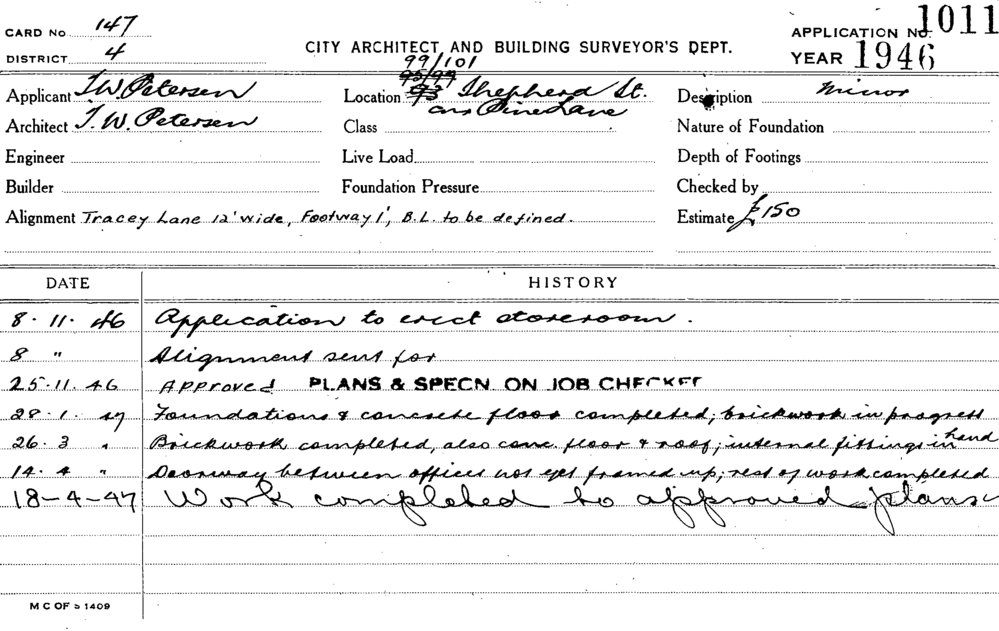 CARD No 147
DISTRICT 4
CITY ARCHITECT AND BUILDING SURVEYOR'S DEPT.
APPLICATION No. 1011
YEAR 1946
Applicant T.W. Petersen
99/101
95/97
Location 93 Shepherd St.
cnr Pine Lane
Description Minor
Architect T. W. Petersen
Class
Nature of Foundation
Engineer
Live Load
Depth of Footings
Builder
Foundation Pressure
Checked by
Alignment Tracey Lane 12' wide, Footway 1', B.L. to be defined.
Estimate £150
DATE HISTORY
8.11.46 Application to erect storeroom.
8 " Alignment sent for
25.11.46 Approved PLANS & SPECN. ON JOB CHECKED
28.1.47 Foundations & concrete floor completed; brickwork in progress
26.3 " Brickwork completed, also conc. floor & roof; internal fittings in hand
14.4 " Doorway between offices not yet framed up; rest of work completed
18-4-47 Work completed to approved plans
M C OF S 1409